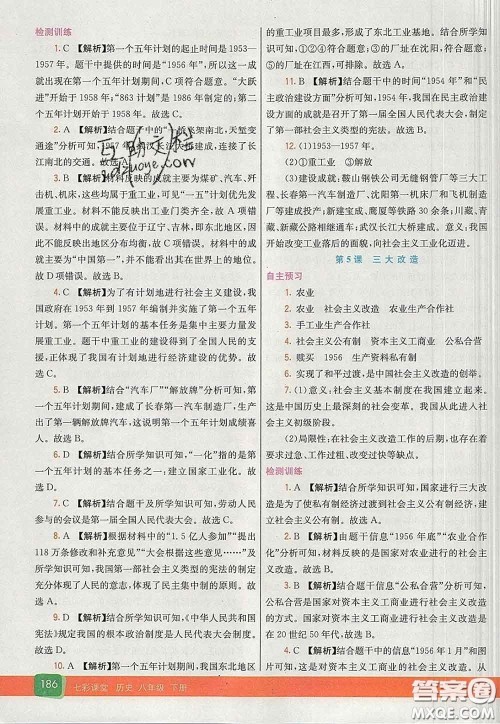 检测训练
1. C 【解析】第一个五年计划的起止时间是1953—
1957年。题干中提供的时间是“1956年”，所以这一成
就出现在第一个五年计划期间，C项符合题意。“大跃
进”开始于1958年；“863计划”是1986年制定的；第二
个五年计划开始于1958年。故选C。
2. A 【解析】结合题干中的“一桥飞架南北，天堑变
通途”分析可知，
长江南北的交通。故选A。
3. D 【解析】材料反映的成就主要为煤矿、汽车、歼
击机、机床，这些都属于重工业，可见“一五”计划优先
发展重工业。材料不能反映出工业门类齐全。故A项
错误。材料中提到的部位于辽宁、吉林，即东北地区，因
此不能反映出工业分布均衡。故B项错误。材料中没
有体现出工业在世界所占的地位。故C项错误，D项正
确。故选D。
4. C 【解析】为了有计划地进行社会主义建设，我
国政府在1953年到1957年编制并实施了第一个五年
计划。第一个五年计划的基本任务是集中主要力量发
展重工业。题干中重工业的建设得到了全国人民的支
援，正体现了我国有计划地进行经济建设的优势。故
选C。
5. B 【解析】结合“汽车厂”“解放牌”分析可知，第
一个五年计划期间，建成了长春第一汽车制造厂，生产
出了第一辆解放牌汽车，这说明第一个五年计划成绩喜
人。故选B。
6. B 【解析】结合所学知识可知，“一化”指的是第
一个五年计划的基本任务之一，也就是国家工业化。故
选B。
7. C 【解析】结合题干及所学知识可知，劳动人民
参与的是第一届全国人民代表大会。故选C。
8. A 【解析】根据材料中的“1.5亿人参加”“提出
118万多条修改和补充意见”“大会认真讨论了《中华人
民共和国宪法》……”及所学知识可知，这部宪法的制定
充分体现了人民的意志，体现了民主集中制的原则。故
选A。
9. C 【解析】结合所学知识可知，《中华人民共和国
宪法》规定，我国的根本政治制度是人民代表大会制度。
故选C。
10. A 【解析】结合所学知识可知，我国东北地区
的重工业基地，形成了东北工业基地。结合所学
识可知，①②④符合题意；③的厂址在沈阳，不符合题
意，可排除。故选A。
11. B 【解析】结合题干中的时间“1954年”和“民
主政治建设方面”分析可知，1954年，我国在民主政治
建设方面的成就是召开了第一届全国人民代表大会，制
定了第一部社会主义类型的宪法。故选B。
12. (1)1953—1957年。
(2)①重工业 ③解放
(3)建设成就：鞍山钢铁公司无缝钢管厂等三大工
程、长春第一汽车制造厂、沈阳第一机床厂和飞机制造
厂等建成投产。宝成铁路、鹰厦铁路等铁路30余条；川藏、
青藏、新藏公路相继通车；武汉长江大桥建成。意义：我国
开始改变工业落后的面貌，向社会主义工业化迈进。
第5课 三大改造
自主预习
1. 农业
2. 农业 社会主义改造 农业生产合作社
3. 手工业生产合作社
4. 社会主义改造 资本主义工商业 公私合营
5. 赎买 1956 生产资料私有制
6. 实现了和平过渡，是我国社会主义建设事业的伟大
创举。
7. (1)意义：社会主义基本制度在我国建立起来。这
是中国历史上最深刻的社会变革。我国从此进入社会主
义初级阶段。
(2)局限性：在农业社会主义改造的后期工作中，存在
要求过高、工作过粗、改变过快等缺点。
检测训练
1. A 【解析】结合所学知识可知，国家进行三大改造
的实质是变生产资料私有制为社会主义公有制，使我国初
步建立起社会主义制度。故选A。
2. B 【解析】由题干信息“1956年底”“农业合作化”
分析可知，材料反映的是国家对农业进行的社会主义改
造。故选B。
3. B 【解析】结合题干信息“公私合营”分析可知，材
料反映的是国家对资本主义工商业的社会主义改造，目的
是把资本主义工商业改变成社会主义公有制企业，发生在
20世纪50年代。故选B。
4. C 【解析】结合题干信息“1956年1月”和图片分析
可知，图片反映的是国家对资本主义工商业进行的社会主
186 七彩课堂 历史 八年级 下册
答案圈